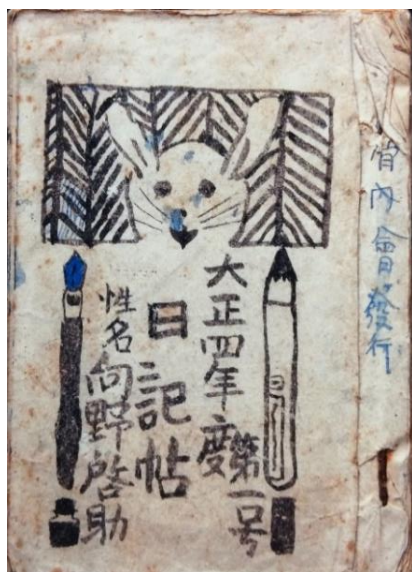 管内會發行
大正四年度第一号
日記帖
性名 向野啓助